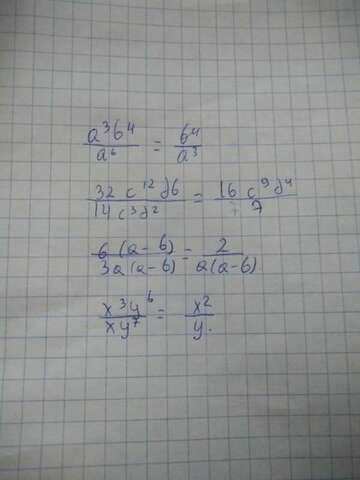 a³b⁴/a⁶ = b⁴/a³
32c¹²d⁶/14c³d² = 16c⁹d⁴/7
6(a-b)/3a(a-b) = 2/a(a-b)
x³y⁶/xy⁷ = x²/y.